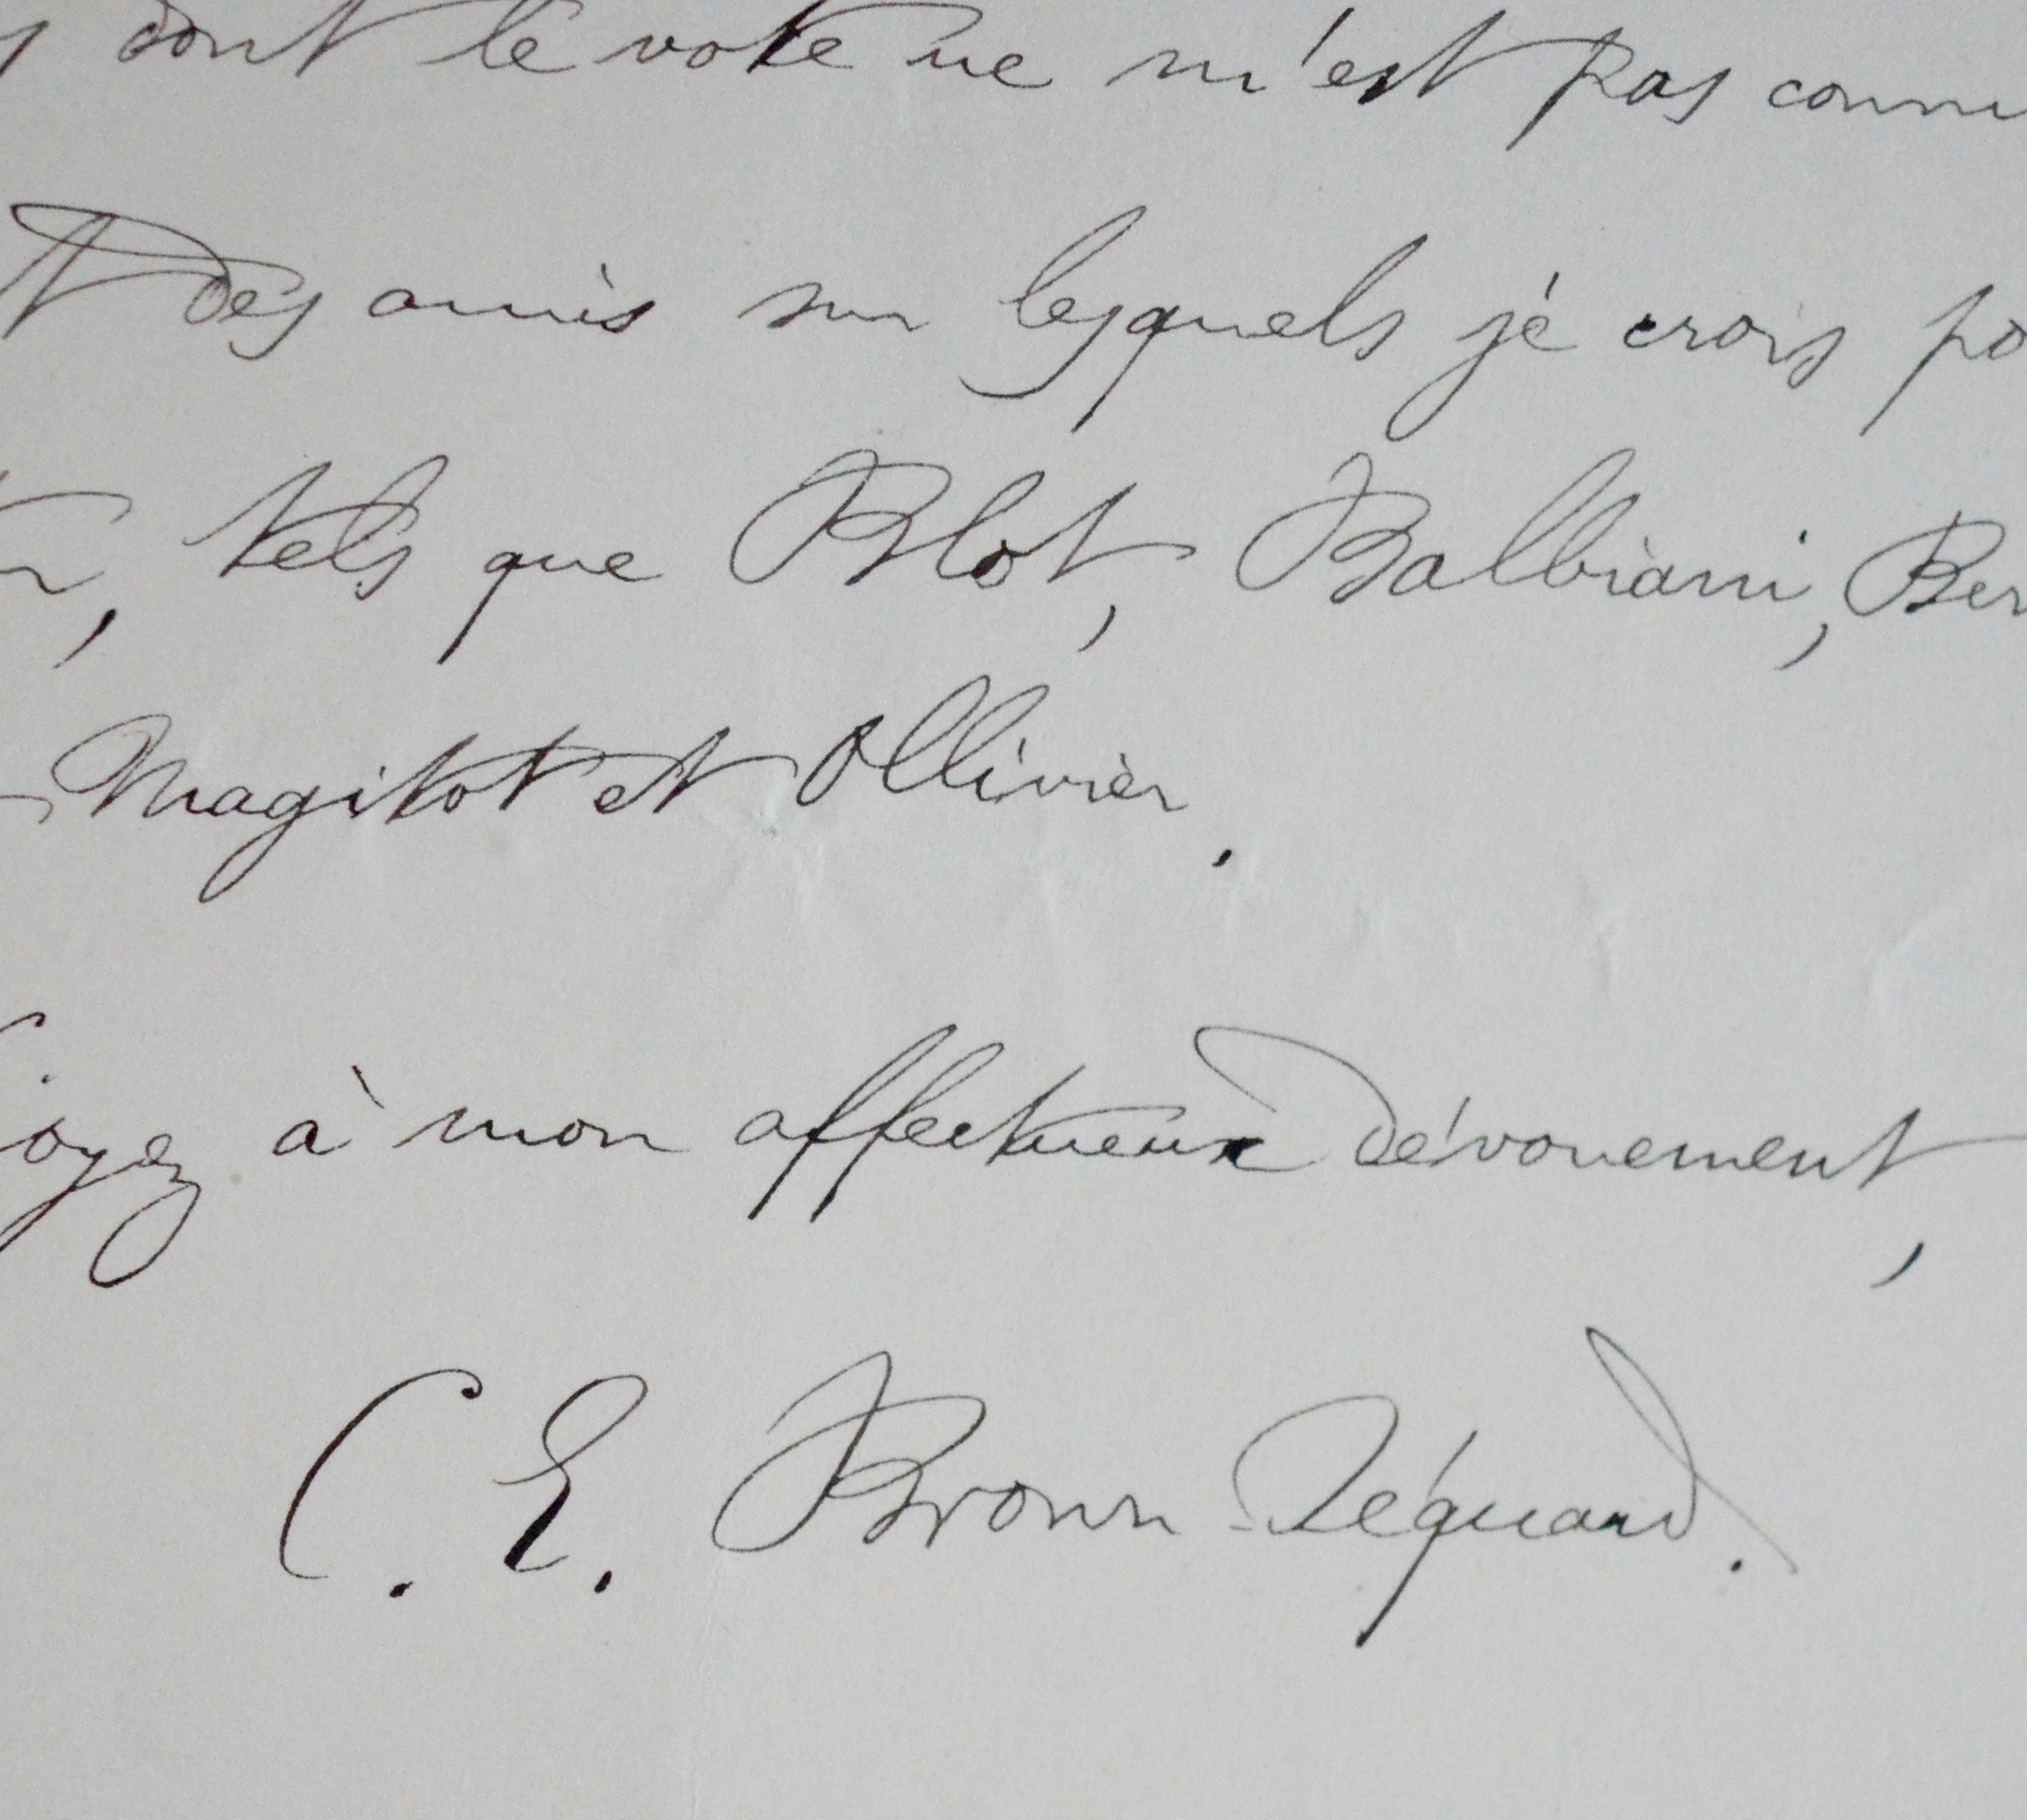 dont le vote ne m'est pas connu
des amis sur lesquels je crois po
tels que Blot, Balbiani, Ber
Magitot et Ollivier.
oyez à mon affectueux dévouement,
C. E. Brown-Séquard.